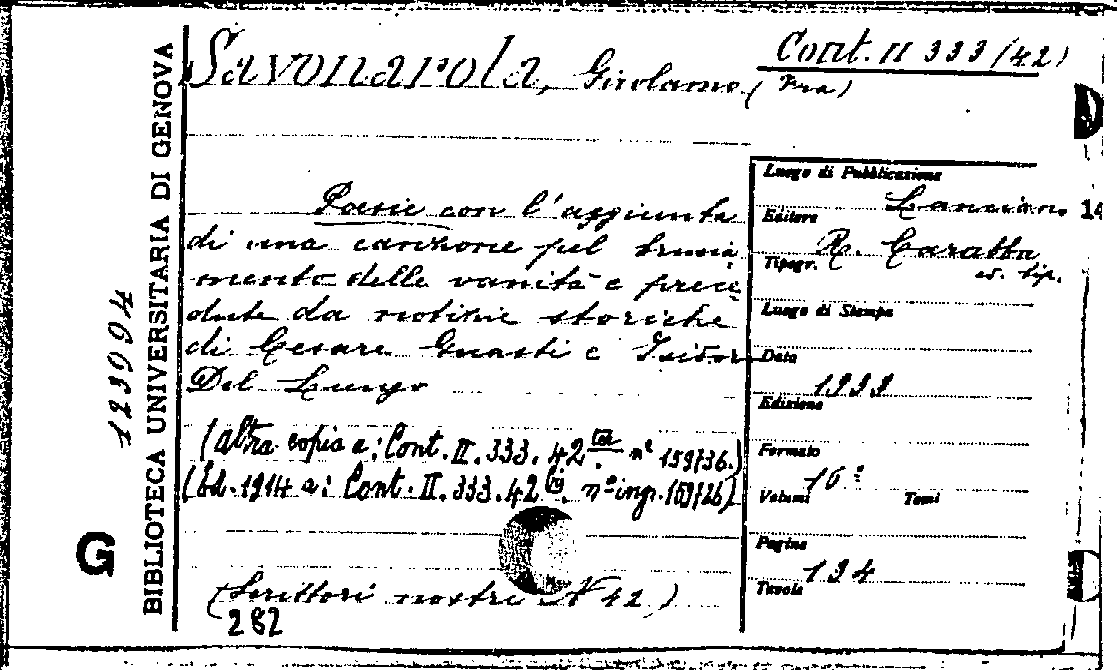 Savonarola, Girolamo (Fra)
Cont. II 333/42)
BIBLIOTECA UNIVERSITARIA DI GENOVA
123994
G
Poesie con l'aggiunta
di una canzone pel brucia
mento delle vanità e prece
dute da notizie storiche
di Cesare Guasti e Isidoro
Del Lungo
(altra copia a: Cont. II. 333. 42 n° 159736.)
(Ed. 1914 a: Cont. II. 333. 42 n° inp.
(Scrittori nostri N 42)
282
Luogo di Pubblicazione
Lanciano
14
Editore
R. Caratta
Tipogr.
ed. tip.
Luogo di Stampa
Data
1933
Edizione
Formato
16°
Volumi Tomi
Pagine
134
Tavole